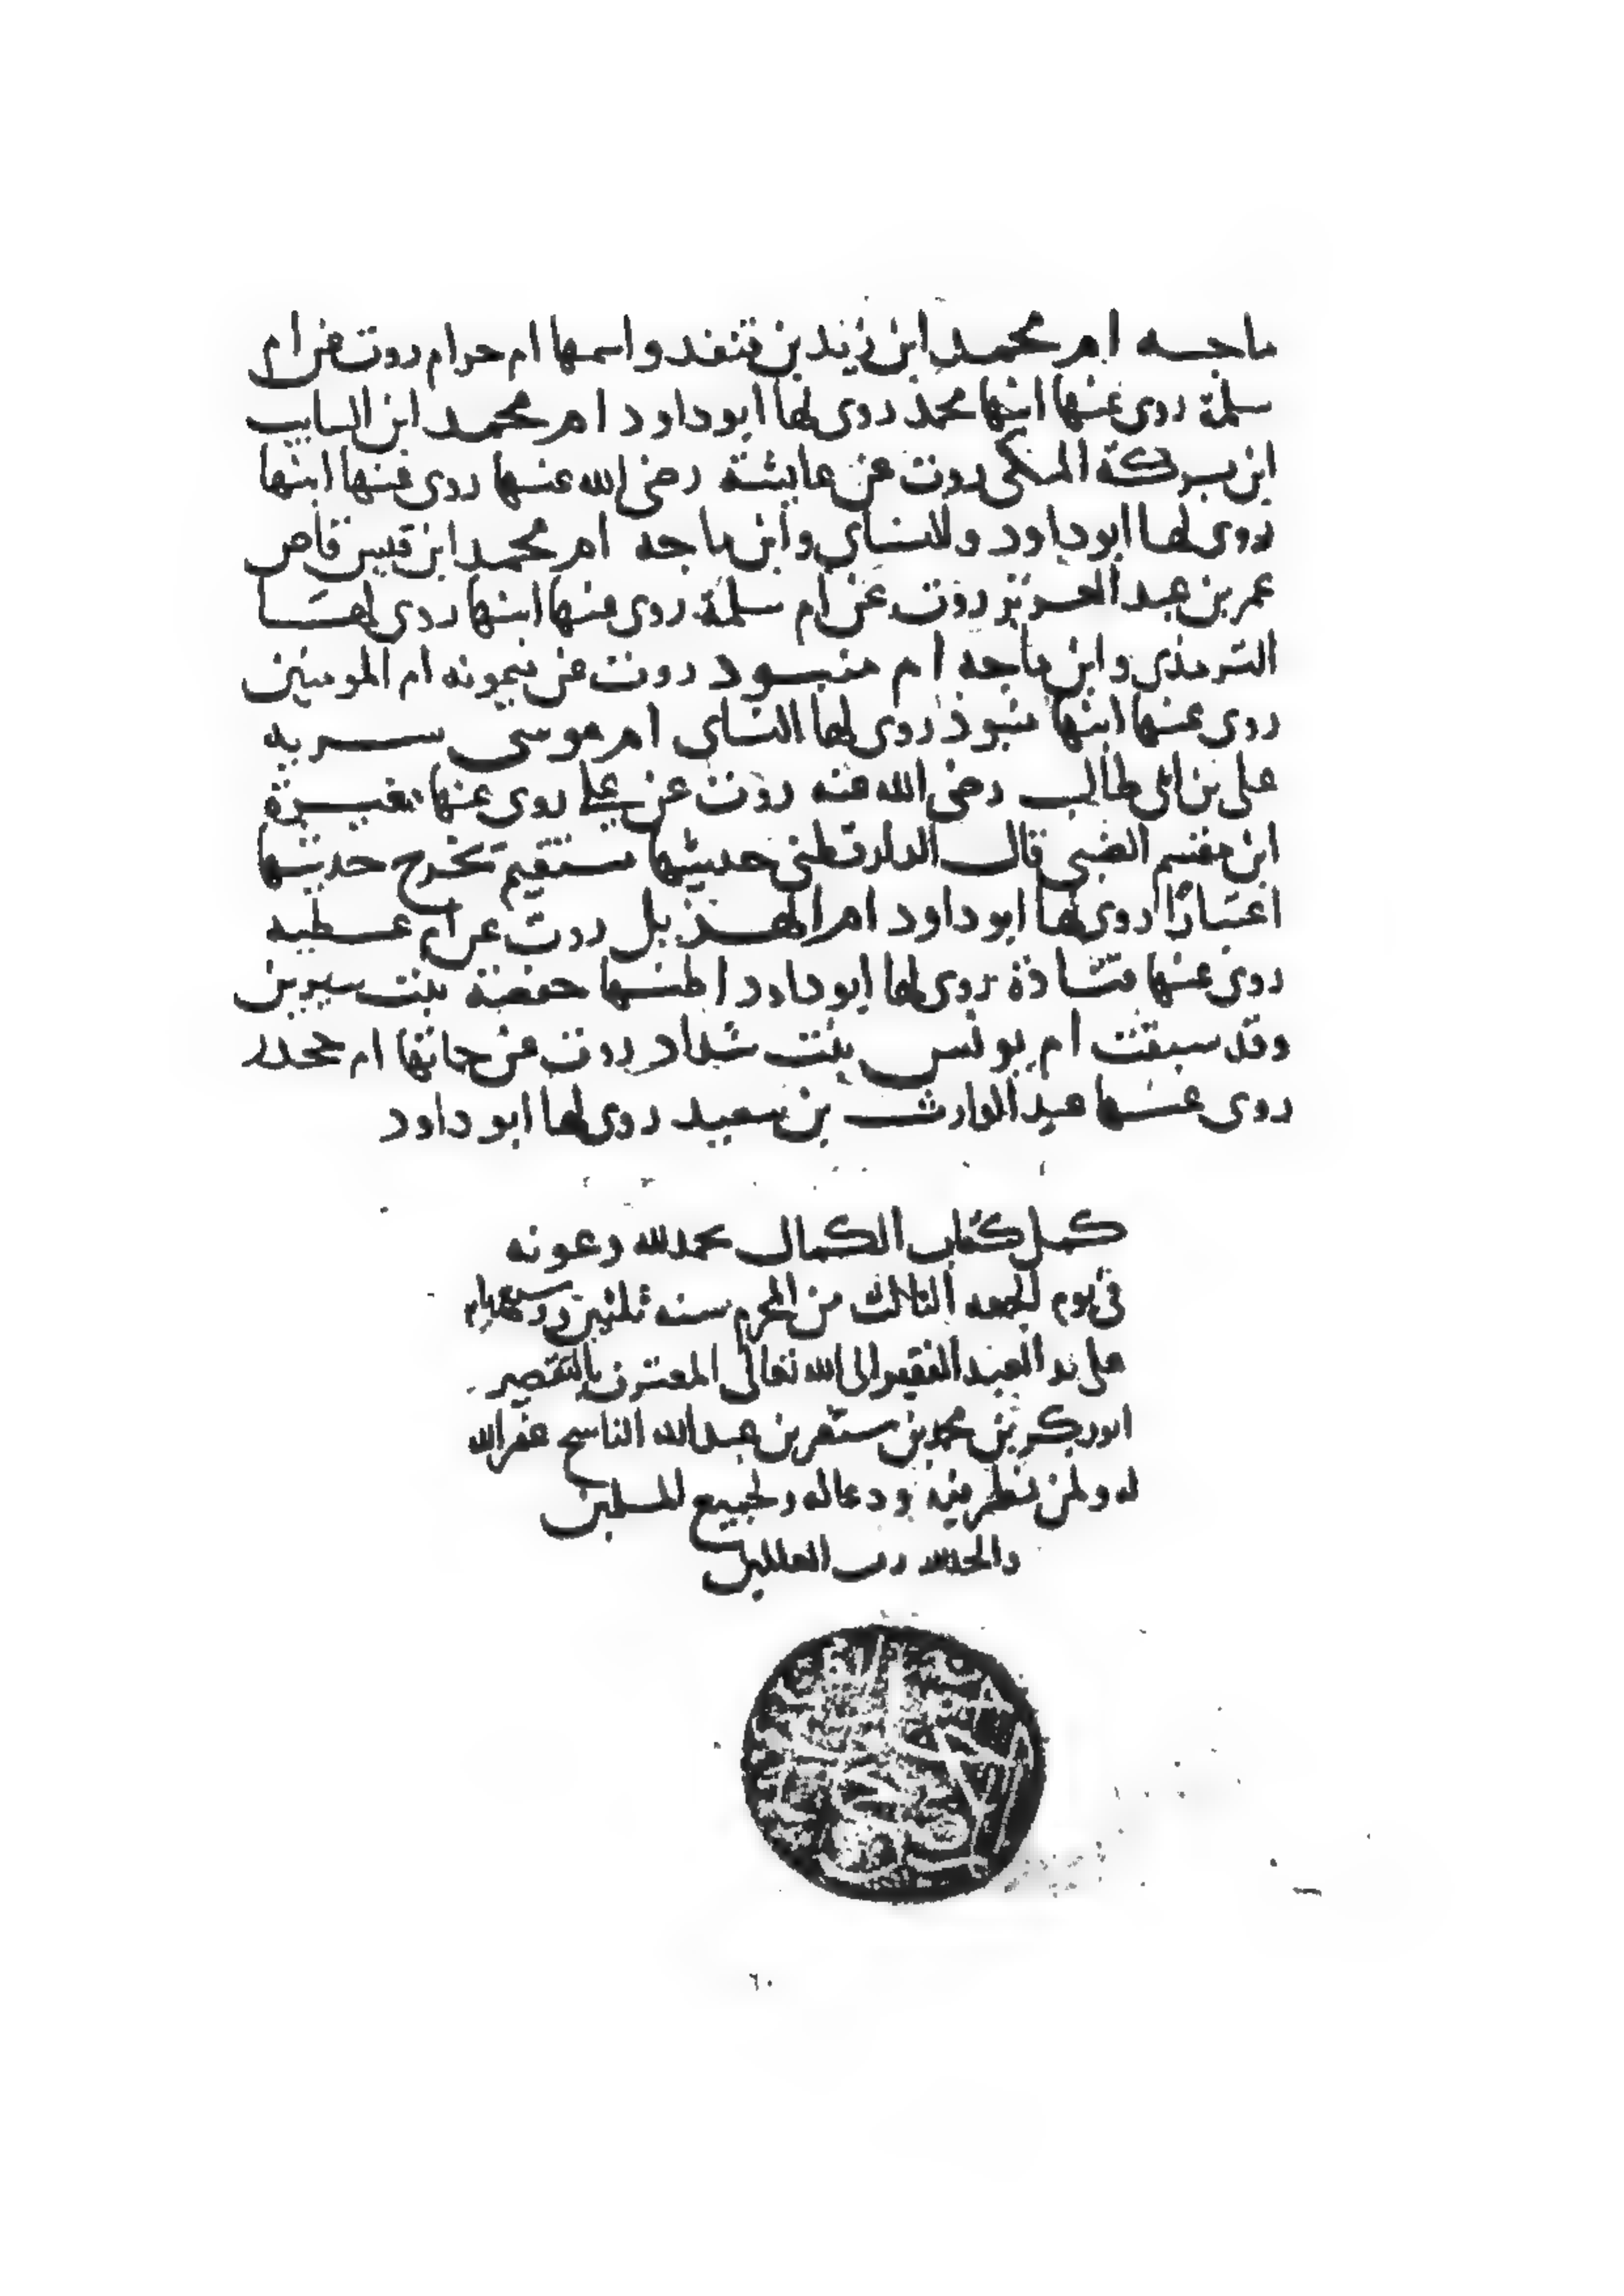 ماجه ام محمد ابن زيد بن قنفد واسمها ام حرام روت عن ام
سلمة روى عنها ابنها محمد روى لها ابوداود ام محمد ابن السايب
ابن بركة المكى روت عن عايشة رضى الله عنها روى عنها ابنها
روى لها ابوداود والنساى وابن ماجه ام محمد ابن قيس قاص
عمر بن عبد العزيز روت عن ام سلمة روى عنها ابنها روى لها
الترمذى وابن ماجه ام منبود روت عن ميمونه ام المومنين
روى عنها ابنها منبوذ روى لها النساى ام موسى سريه
على بن ابى طالب رضى الله عنه روت عن على روى عنها مغيرة
ابن مقسم الضبى قال الدارقطنى حديثها مستقيم تخرج حديثها
اعتبارًا روى لها ابوداود ام الهذيل روت عن ام عطيه
روى عنها قتادة روى لها ابوداود اظنها حفصة بنت سيرين
وقد سبقت ام يونس بنت شداد روت عن حماتها ام جحدر
روى عنها عبد الوارث بن سعيد روى لها ابو داود
كمل كتاب الكمال بحمد لله وعونه
فى يوم الجمعه الثالث من المحرم سنه ثلثين وسبعمايه
على يد العبد الفقير الى الله تعالى المعترف بالتقصير
ابوبكر بن محمد بن سنقر بن عبد الله الناسخ غفر الله
له ولمن نظر فيه ودعا له ولجميع المسلمين
والحمد لله رب العلمين
٦٠